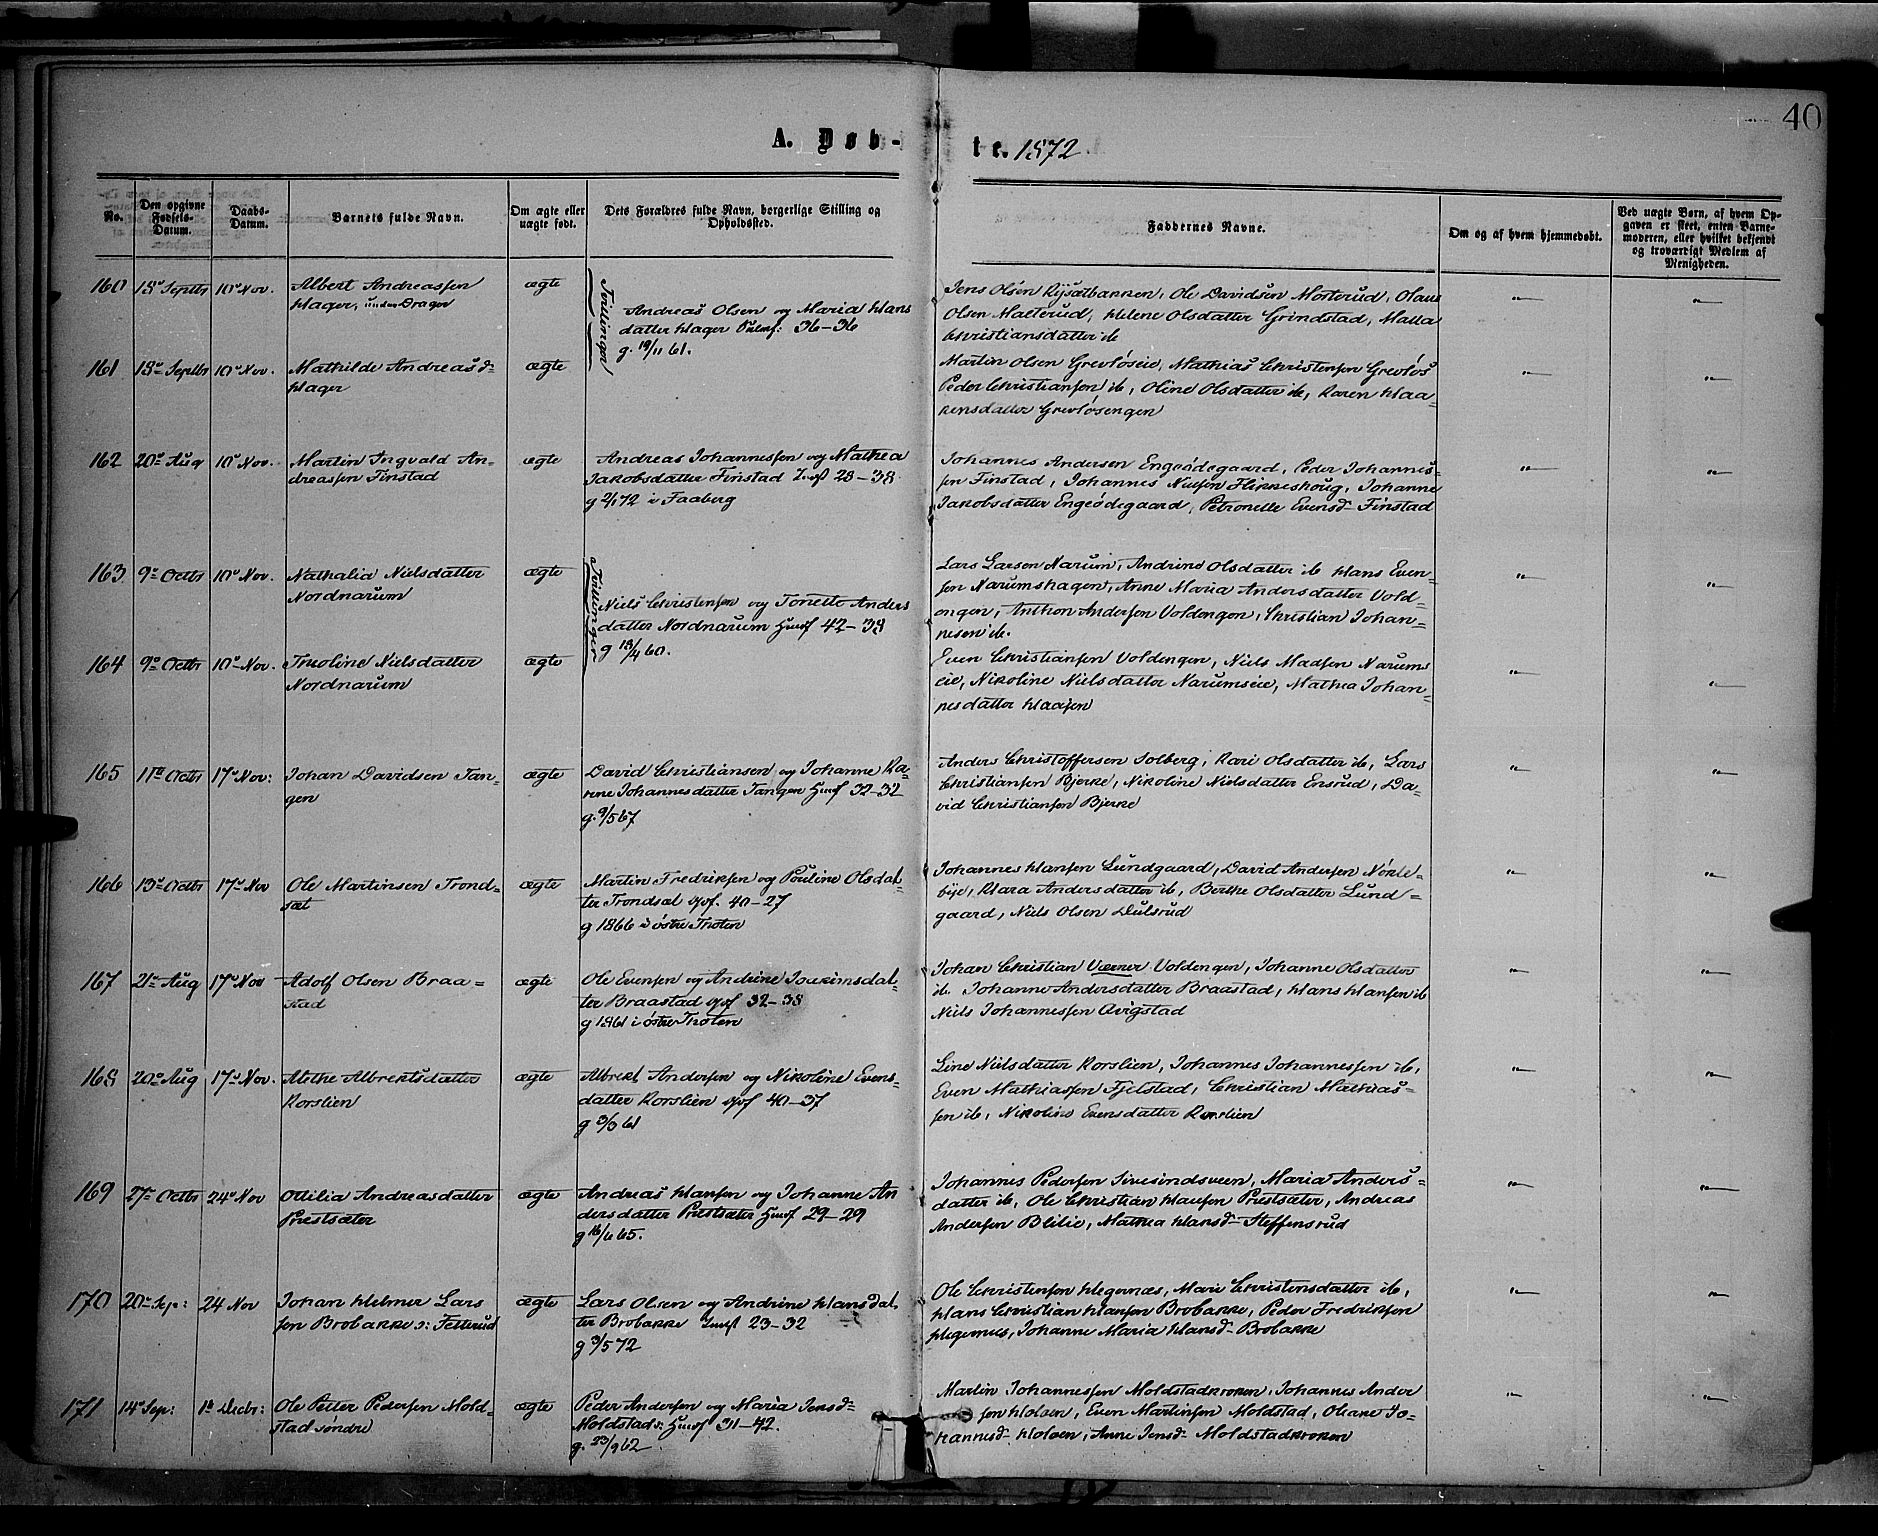 40
A. Døb-
te. 1872
No.
Den opgivne Fødsels-Datum.
Daabs-Datum.
Barnets fulde Navn.
Om ægte eller uægte født.
Dets Forældres fulde Navn, borgerlige Stilling og Opholdssted.
Faddernes Navne.
Om og af hvem hjemmedøbt.
Ved uægte Børn, af hvem Opgaven er skeet, enten Barnemoderen, eller hvilket bekjendt og troværdigt Medlem af Menigheden.
160 18de Septbr 10de Nov. Albert Andreassen
Hager, under Drager
ægte
Tvillinger
Andreas Olsen og Maria Hans
datter Hager 36-36
g. 19/11 61.
Jens Olsen Rysætbakken, Ole Davidsen Mosterud, Olaus
Olsen Malterud, Helene Olsdatter Grindstad, Malla
Christiansdatter ib
161 18de Septbr 10de Nov. Mathilde Andreasd-
Hager
ægte
Martin Olsen Grevløseie, Mathias Christensen Grevløs
Peder Christiansen ib, Oline Olsdatter ib, Karen Haa-
kensdatter Grevløsengen
162 20de Aug 10de Nov. Martin Ingvald An-
dreassen Finstad
ægte
Andreas Johannessen og Mathea
Jakobsdatter Finstad Inst 28-38
g 2/1 72 i Faaberg
Johannes Andersen Engeødegaard, Peder Johannes-
sen Finstad, Johannes Nilsen Flikkeshoug, Johanne
Jakobsdatter Engeødegaard, Petronelle Evensd- Finstad
163 9de Octbr 10de Nov. Nathalia Nielsdatter
Nordnarum
ægte
Tvillinger
Niels Christensen og Tonette Anders
datter Nordnarum Husf 42-38
g 18/4 60.
Lars Larsen Narum, Andrine Olsdatter ib Hans Even-
sen Narumshagen, Anne Maria Andersdatter Vold-
engen, Anthon Andersen Voldengen, Christian Johan-
nesen ib.
164 9de Octbr 10de Nov. Trueline Nielsdatter
Nordnarum
ægte
Even Christiansen Voldengen, Niels Madsen Narums
eie, Nikoline Nielsdatter Narumseie, Mathea Johan-
nesdatter Haajen
165 11te Octbr 17de Nov: Johan Davidsen Tan-
gen
ægte
David Christiansen og Johanne Ka-
rine Johannesdatter Tangen Husf 32-32
g. 9/5 67
Anders Christoffersen Solberg, Kari Olsdatter ib, Lars
Christiansen Bjerke, Nikoline Nielsdatter Ensrud, Da-
vid Christiansen Bjerke
166 13de Octbr 17de Nov Ole Martinsen Trond-
sæt
ægte
Martin Fredriksen og Pauline Olsdat-
ter Trondsæt 40-27
g 1866 i østre Thoten
Johannes Hansen Lundgaard, David Andersen Nørle-
bye, Klara Andersdatter ib, Berthe Olsdatter Lund-
gaard, Niels Olsen Dulsrud
167 21de Aug 17de Nov Adolf Olsen Braa-
stad
ægte
Ole Evensen og Andrine Joakimsdat-
ter Braastad 32-38
g 1861 i østre Thoten
Johan Christian Værner Voldengen, Johanne Olsdatter
ib. Johanne Andersdatter Braastad, Hans Hansen ib
Niels Johannessen Qvigstad
168 20de Aug 17de Nov. Methe Albrektsdatter
Korslien
ægte
Albrekt Andersen og Nikoline Evens-
datter Korslien 40-37
g 3/3 61
Line Nielsdatter Korslien, Johannes Johannessen ib,
Even Mathiassen Fjelstad, Christian Mathias-
sen ib, Nikoline Evensdatter Korslien
169 27de Octbr 24de Nov Ottilia Andreasdatter
Præstsæter
ægte
Andreas Hansen og Johanne An
dersdatter Præstsæter Husf 29-29
g 16/6 65.
Johannes Pedersen Sivesindsveen, Maria Anders-
datter ib, Ole Christian Hansen Præstsæter, Andreas
Andersen Blilie, Mathea Hansd- Steffensrud
170 20de Sep: 24 Nov Johan Helmer Lars
sen Brobakke : Fetterud
ægte
Lars Olsen og Andrine Hansdat-
ter Brobakke Inst 23-32
g 3/5 72
Ole Christensen Hegernæs, Marie Christensdatter ib,
Hans Christian Hansen Brobakke, Peder Fredriksen
Hegernæs, Johanne Maria Hansd- Brobakke
171 14de Sep: 1te Decbr: Ole Petter Pedersen Mold-
stad søndre
ægte
Peder Andersen og Maria Jensd-
Moldstad s. Husf 31-42.
g. 23/9 62
Martin Johannessen Moldstadkroken, Johannes Ander
sen Holven, Even Martinsen Moldstad, Oleane Jo-
hannesd- Holven, Anne Jensd- Moldstadkroken